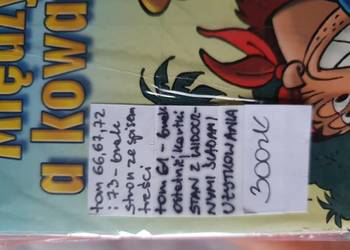 Między
a kowa
tom 66,67,72
i 73 - brak
stron ze spisem
treści
tom 61 - brak
ostatniej kartki
STAN Z WIDOCZ-
NYMI ŚLADAMI
UŻYTKOWANIA
300ZŁ